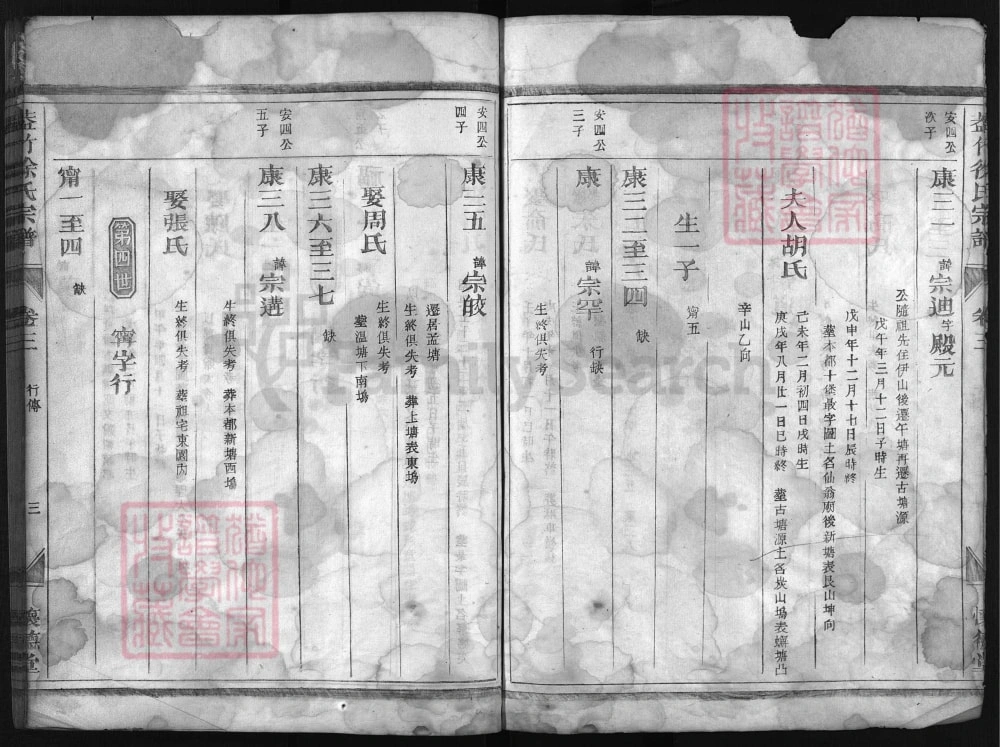 安四公
次子
康三一
諱
宗迪
字
殿元
公隨祖先住伊山後遷午塘再遷古塘源
戊午年三月十二日子時生
戊申年十二月十七日辰時終
墓本都十保最字圖土名仙翁廟後新塘表艮山坤向
夫人胡氏
己未年二月初四日戌時生
庚戌年八月廿一日巳時終 墓古塘源土名炭山塢表塘凸
辛山乙向
生一子
甯五
康三二至三四
缺
安四公
三子
康
諱
宗罕
行缺
生終俱失考
安四公
四子
康三五
諱
宗皎
遷居盖塘
生終俱失考 葬上塘表東塢
娶周氏
生終俱失考
墓溫塘下南塢
康三六至三七
缺
安四公
五子
康三八
諱
宗遘
生終俱失考 葬本都新塘西塢
娶張氏
生終俱失考 墓祖宅東園內
第四世
甯字行
甯一至四
缺
徐氏宗譜
卷三
行傳
三
懷德堂
FamilySearch